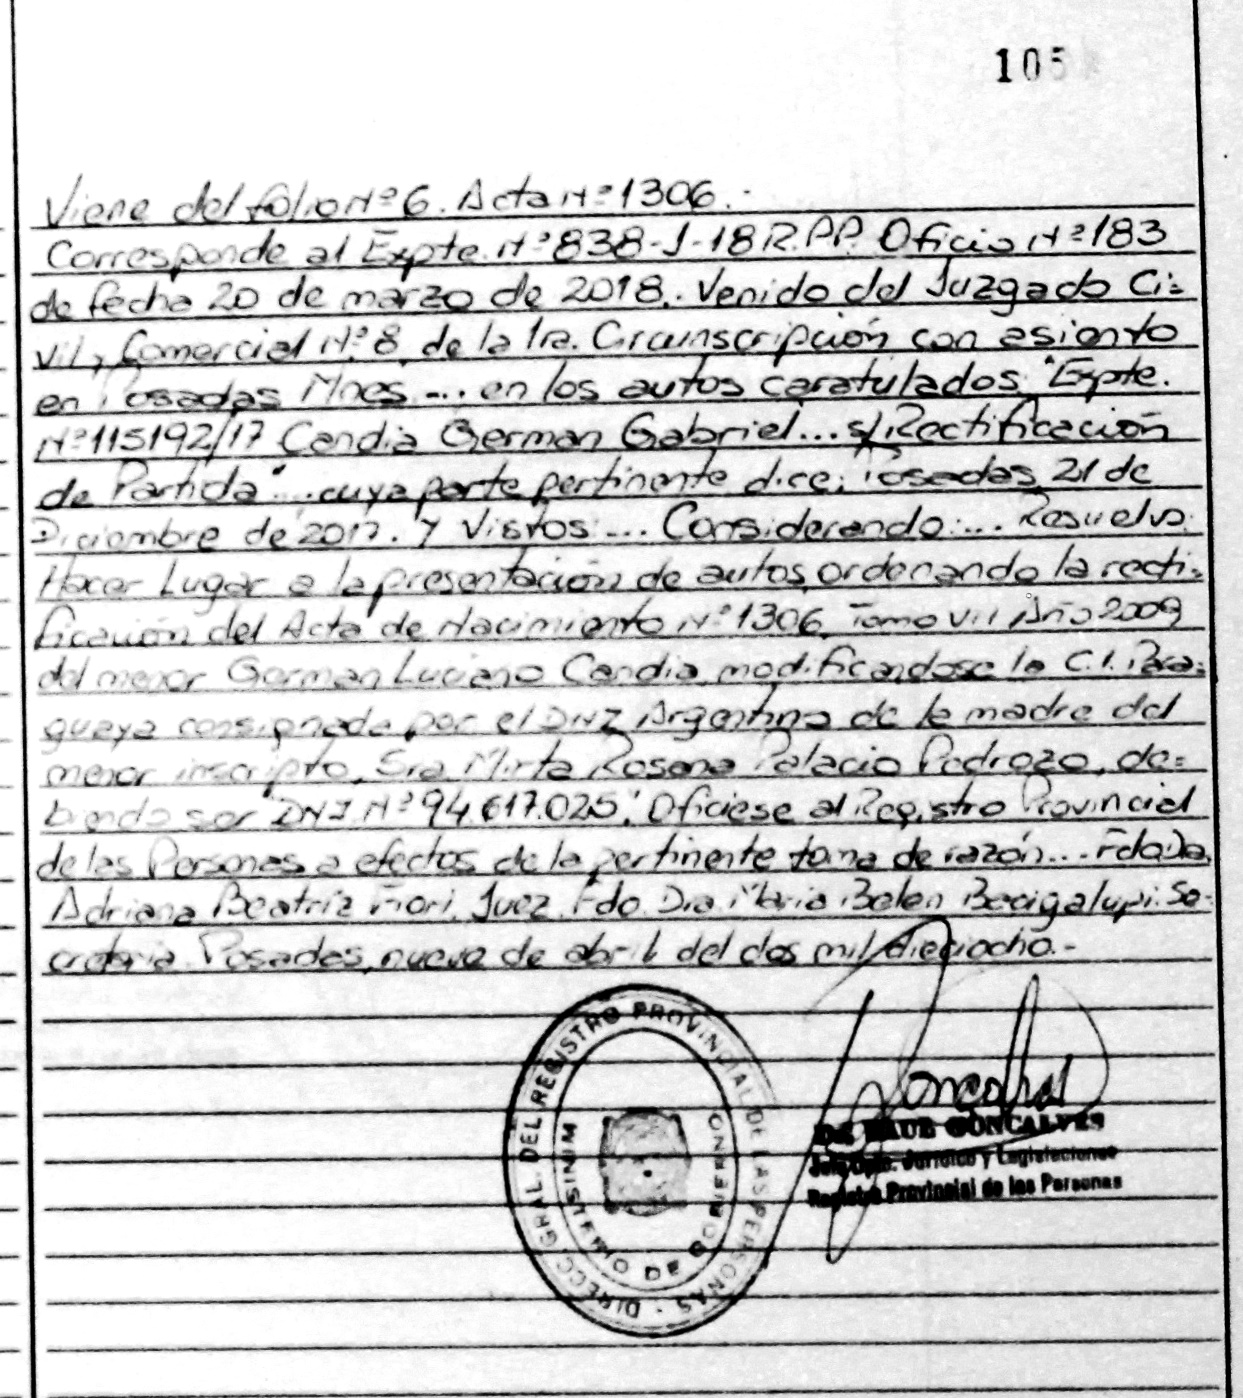 105
Viene del folio Nº 6. Acta Nº 1306.-
Corresponde al Expte. Nº 838-J-18 R.P.P. Oficio Nº 183
de fecha 20 de marzo de 2018. Venido del Juzgado Ci=
vil y Comercial Nº 8 de la 1ra. Circunscripción con asiento
en Posadas Mnes... en los autos caratulados "Expte.
Nº 115192/17 Candia German Gabriel... s/Rectificación
de Partida"... cuya parte pertinente dice: Posadas, 21 de
Diciembre de 2017. Y Vistos:... Considerando:... Resuelvo:
Hacer Lugar a la presentación de autos, ordenando la recti=
ficación del Acta de Nacimiento Nº 1306, Tomo VII Año 2009
del menor German Luciano Candia, modificandose la C.I. Para=
guaya consignada por el DNI Argentino de la madre del
menor inscripto, Sra Mirta Rosana Palacio Pedrozo, de=
biendo ser "DNI. Nº 94.617.025". Ofíciese al Registro Provincial
de las Personas a efectos de la pertinente toma de razón... Fdo Dra.
Adriana Beatríz Fiori. Juez. Fdo. Dra. Maria Belen Bacigalupi. Se=
cretaria. Posadas, nueve de abril del dos mil dieciocho.-
DIRECC. GRAL. DEL REGISTRO PROVINCIAL DE LAS PERSONAS
MINISTERIO DE GOBIERNO
GONCALVES
Jefe Dpto. Jurídico y Legislaciones
Registro Provincial de las Personas